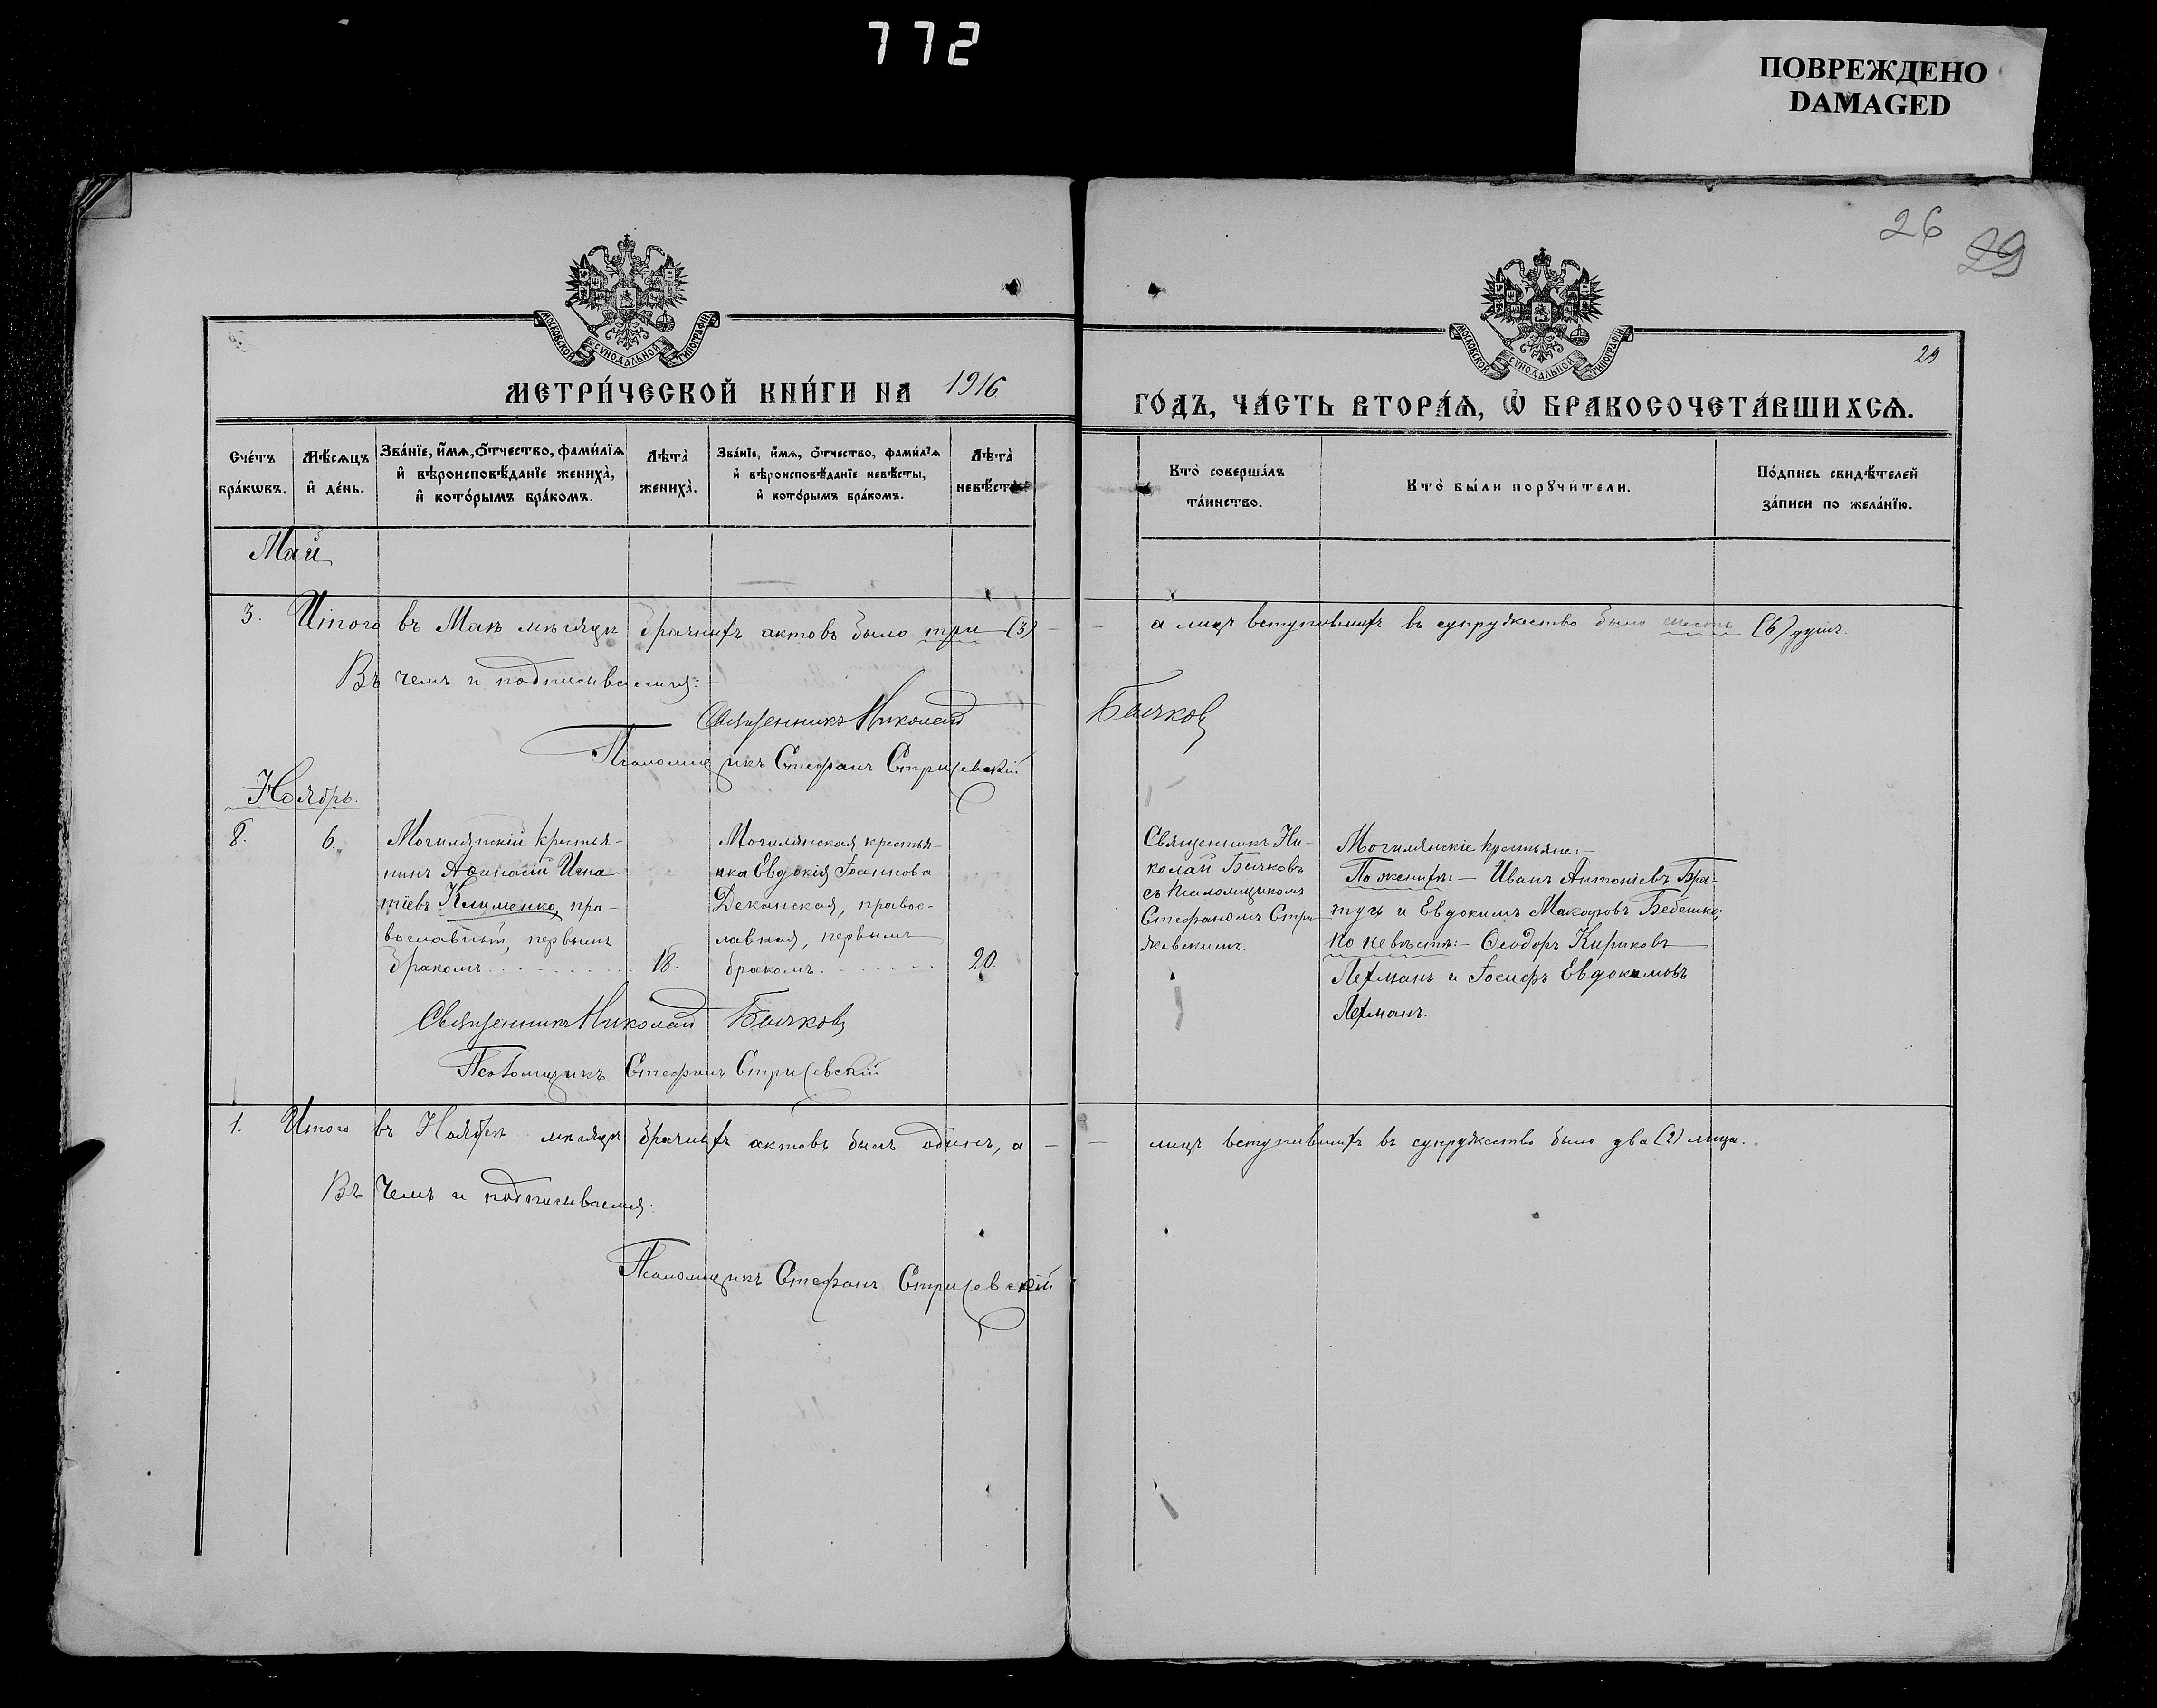 772
ПОВРЕЖДЕНО
DAMAGED
26 29
МОСКОВСКОЙ СѴНОДАЛЬНОЙ ТИПОГРАФІИ
МОСКОВСКОЙ СѴНОДАЛЬНОЙ ТИПОГРАФІИ
29
МЕТРИ́ЧЕСКОЙ КНИ́ГИ НА 1916
ГО́ДЪ, ЧА́СТЬ ВТОРА́Ѧ, Ѽ БРАКОСОЧЕТА́ВШИХСѦ.
Сче́тъ
бра́кѡвъ.
Мѣ́сѧцъ
и҆ де́нь.
Зва́нїе, и҆́мѧ, ѻ҆́тчество, фами́лїѧ
и҆ вѣроисповѣ́данїе жениха̀,
и҆ кото́рымъ бра́комъ.
Лѣта̀
жениха̀.
Зва́нїе, и҆́мѧ, ѻ҆́тчество, фами́лїѧ
и҆ вѣроисповѣ́данїе невѣ́сты,
и҆ кото́рымъ бра́комъ.
Лѣта̀
невѣ́сты.
Кто̀ соверша́лъ
та́инство.
Кто̀ бы́ли порꙋчи́тели.
По́дпись свидѣ́телей
за́писи по жела́нїю.
Май
3. Итого въ Маѣ мѣсяцѣ брачныхъ актовъ было три (3) —
— а лицъ вступившихъ въ супружество было шесть (6) душъ.
Въ чемъ и подписываемся: —
Священникъ Николай Бычковъ
Псаломщикъ Стефанъ Стрижевскій
Ноябрь.
8. 6.
Могилянскій крестья-
нинъ Аѳанасій Игна-
тіевъ Клименко, пра-
вославный, первымъ
бракомъ. . . . . . . . . . 18.
Могилянская крестья-
нка Евдокія Іоаннова
Деканская, правос-
лавная, первымъ
бракомъ. . . . . . . . 20.
Священникъ Ни-
колай Бычковъ
съ псаломщикомъ
Стефаномъ Стри-
жевскимъ.
Могилянскіе крестьяне: —
По женихѣ: — Иванъ Антоніевъ Бра-
тусь и Евдокимъ Макаровъ Бебешко;
по невѣстѣ: — Ѳеодоръ Кириковъ
Лехманъ и Іосифъ Евдокимовъ
Лехманъ.
Священникъ Николай Бычковъ
Псаломщикъ Стефанъ Стрижевскій
1. Итого въ Ноябрѣ мѣсяцѣ брачныхъ актовъ былъ одинъ, а —
— лицъ вступившихъ въ супружество было два (2) лица.
Въ чемъ и подписываемся:
Псаломщикъ Стефанъ Стрижевскій